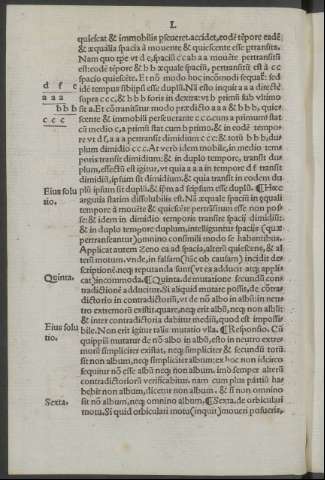 L
quiescat & immobilis pseueret. accidet, eodē tēpore eadē
& æqualia spacia à mouente & quiescente esse ptransita.
Nam quo tpe vt d e, spaciū c c ab a a mouēte pertransitū
est: eodē tēpore & b b æquale spaciū, pertransitū est à c c
spacio quiescēte. Et nō modo hoc incōmodi sequat̄: sed
d f e
idē tempus sibijpsi esse duplū. Nā esto inquit a a a directè
a a a
supra c c c, & b b b foris in dextra: vt b primū sub vltimo
b b b
fit a. Et cōtranitāur modo prædicto a a a & b b b, quies
c c c
cente & immobili perseuerante c c c. cum a primum stat
cū medio c, a primū stat cum b primo: & in eodē tempo-
re vt d f, a a a pertransit dimidium c c c: & totū b b b, du-
plum dimidio c c c. At verò idem mobile, in medio tem-
poris transit dimidium: & in duplo tempore, transit du-
plum, effectū est igitur, vt quia a a a in tempore d f transit
dimidiū, ipsum sit dimidiū: & quia transit in eodem du-
Eius solu
plū ipsum sit duplū. & ipsum ad seipsum esse duplū. ¶ Hæc
tio.
argutia statim dissolubilis est. Nā æquale spaciū in æquali
tempore à mouēte & quiescēte pertrāsitum esse non pos-
se: & idem in dimidio temporis transire spacij dimidiū:
& in duplo tempore duplum, intelliguntur spacijs (quæ
pertranseantur) omnino consimili modo se habentibus.
Applicat autem Zeno ea ad spacia, alterū quiescens, & al-
terū motum. vnde, in falsam (hāc ob causam) incidit de-
scriptionē. neq; reputanda sunt (vt ea adducit atq; appli-
Quinta.
cat) incommoda. ¶ Quinta. de mutatione secundū con-
tradictionē adducitur. Si aliquid mutare possit, de cōtra-
dictorio in contradictoriū, vt de nō albo in albū: in neu-
tro extremorū existit. quare, neq; erit albū, neq; non albū:
& inter contradictoria dabitur mediū, quod est impossi-
Eius solu
bile. Non erit igitur talis mutatio vlla. ¶ Responsio. Cū
tio.
quippiā mutatur de nō albo in albū, esto in neutro extre-
morū simpliciter existat, neq; simpliciter & secundū totū
sit non album, neq; simpliciter album: ex hoc non idcirco
sequitur nō esse albū neq; non album. imò semper alterū
contradictoriorū verificabitur. nam cum plus partiū ha-
bebit non album, dicetur non album, & si non omnino
Sexta.
sit nō album, neq; omnino album. ¶ Sexta. de orbiculari
motu. Si quid orbiculari motu (inquit) moueri posueris,